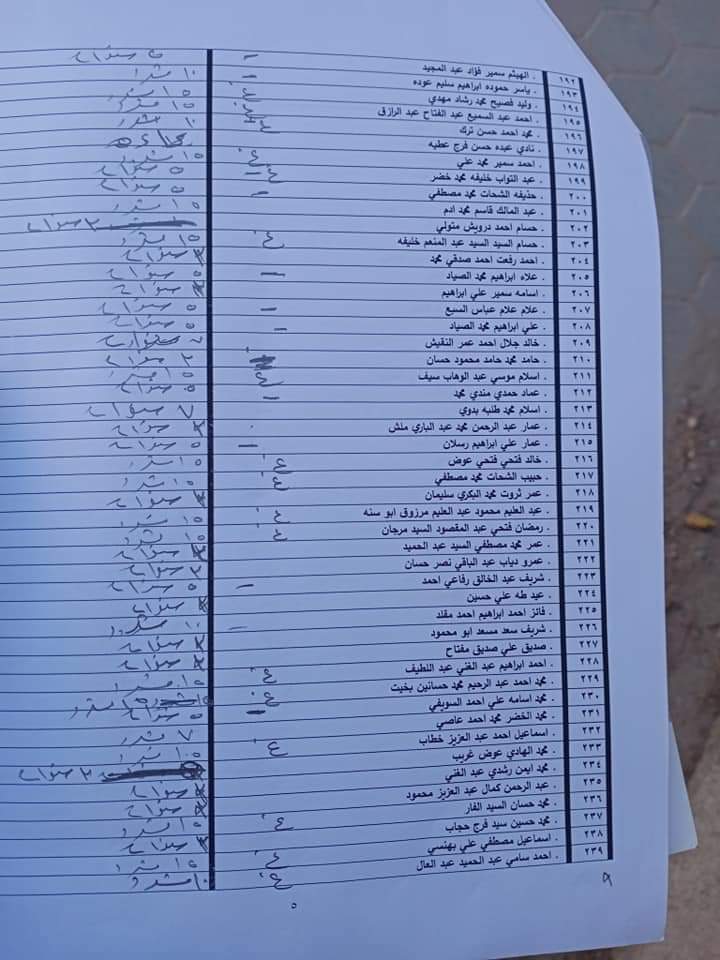 ١٩٢ . الهيثم سمير فؤاد عبد المجيد - ٥ سنوات
١٩٣ . ياسر حموده ابراهيم سليم عوده - ١٠ مشدد
١٩٤ . وليد فصيح محمد رشاد مهدي غ ١٥
١٩٥ . احمد عبد السميع عبد الفتاح عبد الرازق ١٥ مشدد
١٩٦ . محمد احمد حسن ترك ١٠ مشدد
١٩٧ . نادي عبده حسن فرج عطيه
١٩٨ . احمد سمير محمد علي غ ١٥ مشدد
١٩٩ . عبد التواب خليفه محمد خضر ٥ سنوات
٢٠٠ . حذيفه الشحات محمد مصطفي - ٥ سنوات
٢٠١ . عبد المالك قاسم محمد ادم ١٥ مشدد
٢٠٢ . حسام احمد درويش متولي ٣ سنوات
٢٠٣ . حسام السيد السيد عبد المنعم خليفه غ ١٥ مشدد
٢٠٤ . احمد رفعت احمد صدقي محمد ٣ سنوات
٢٠٥ . علاء ابراهيم محمد الصياد - ٥ سنوات
٢٠٦ . اسامه سمير علي ابراهيم سنوات
٢٠٧ . علام علام عباس السبع - ٥ سنوات
٢٠٨ . علي ابراهيم محمد الصياد - ٥ سنوات
٢٠٩ . خالد جلال احمد عمر النقيش سنوات
٢١٠ . حامد محمد حامد محمود حسان ٣ سنوات
٢١١ . اسلام موسي عبد الوهاب سيف غ ١٥ مشدد
٢١٢ . عماد حمدي مندي محمد - ٥ سنوات
٢١٣ . اسلام محمد طلبه بدوي ٧ سنوات
٢١٤ . عمار عبد الرحمن محمد عبد الباري ملش ٣ سنوات
٢١٥ . عمار علي ابراهيم رسلان - ٥ سنوات
٢١٦ . خالد فتحي فتحي عوض غ ١٥ مشدد
٢١٧ . حبيب الشحات محمد مصطفي غ ١٥ مشدد
٢١٨ . عمر ثروت محمد البكري سليمان سنوات
٢١٩ . عبد العليم محمود عبد العليم مرزوق ابو سنه غ ١٥ مشدد
٢٢٠ . رمضان فتحي عبد المقصود السيد مرجان غ ١٥ مشدد
٢٢١ . عمر محمد مصطفي السيد عبد الحميد سنوات
٢٢٢ . عمرو دياب عبد الباقي نصر حسان ٣ سنوات
٢٢٣ . شريف عبد الخالق رفاعي احمد - ٥ سنوات
٢٢٤ . عيد طه علي حسين سنوات
٢٢٥ . فائز احمد ابراهيم احمد مقلد
٢٢٦ . شريف سعد مسعد ابو محمود - ١٠ مشدد
٢٢٧ . صديق علي صديق مفتاح سنوات
٢٢٨ . احمد ابراهيم عبد الغني عبد اللطيف غ
٢٢٩ . محمد احمد عبد الرحيم محمد حسانين بخيت غ ١٥ مشدد
٢٣٠ . محمد اسامه علي احمد السويفي ١٥ مشدد
٢٣١ . محمد الخضر محمد احمد عاصي - ٥ سنوات
٢٣٢ . اسماعيل احمد عبد العزيز خطاب غ ٧ مشدد
٢٣٣ . محمد الهادي عوض غريب مشدد
٢٣٤ . محمد ايمن رشدي عبد الغني ٣ سنوات
٢٣٥ . عبد الرحمن كمال عبد العزيز محمود سنوات
٢٣٦ . محمد حسان السيد الفار سنوات
٢٣٧ . محمد حسين سيد فرج حجاب غ ١٥ مشدد
٢٣٨ . اسماعيل مصطفي علي بهنسي ٣ سنوات
٢٣٩ . احمد سامي عبد الحميد عبد العال غ ١٥ مشدد
٩